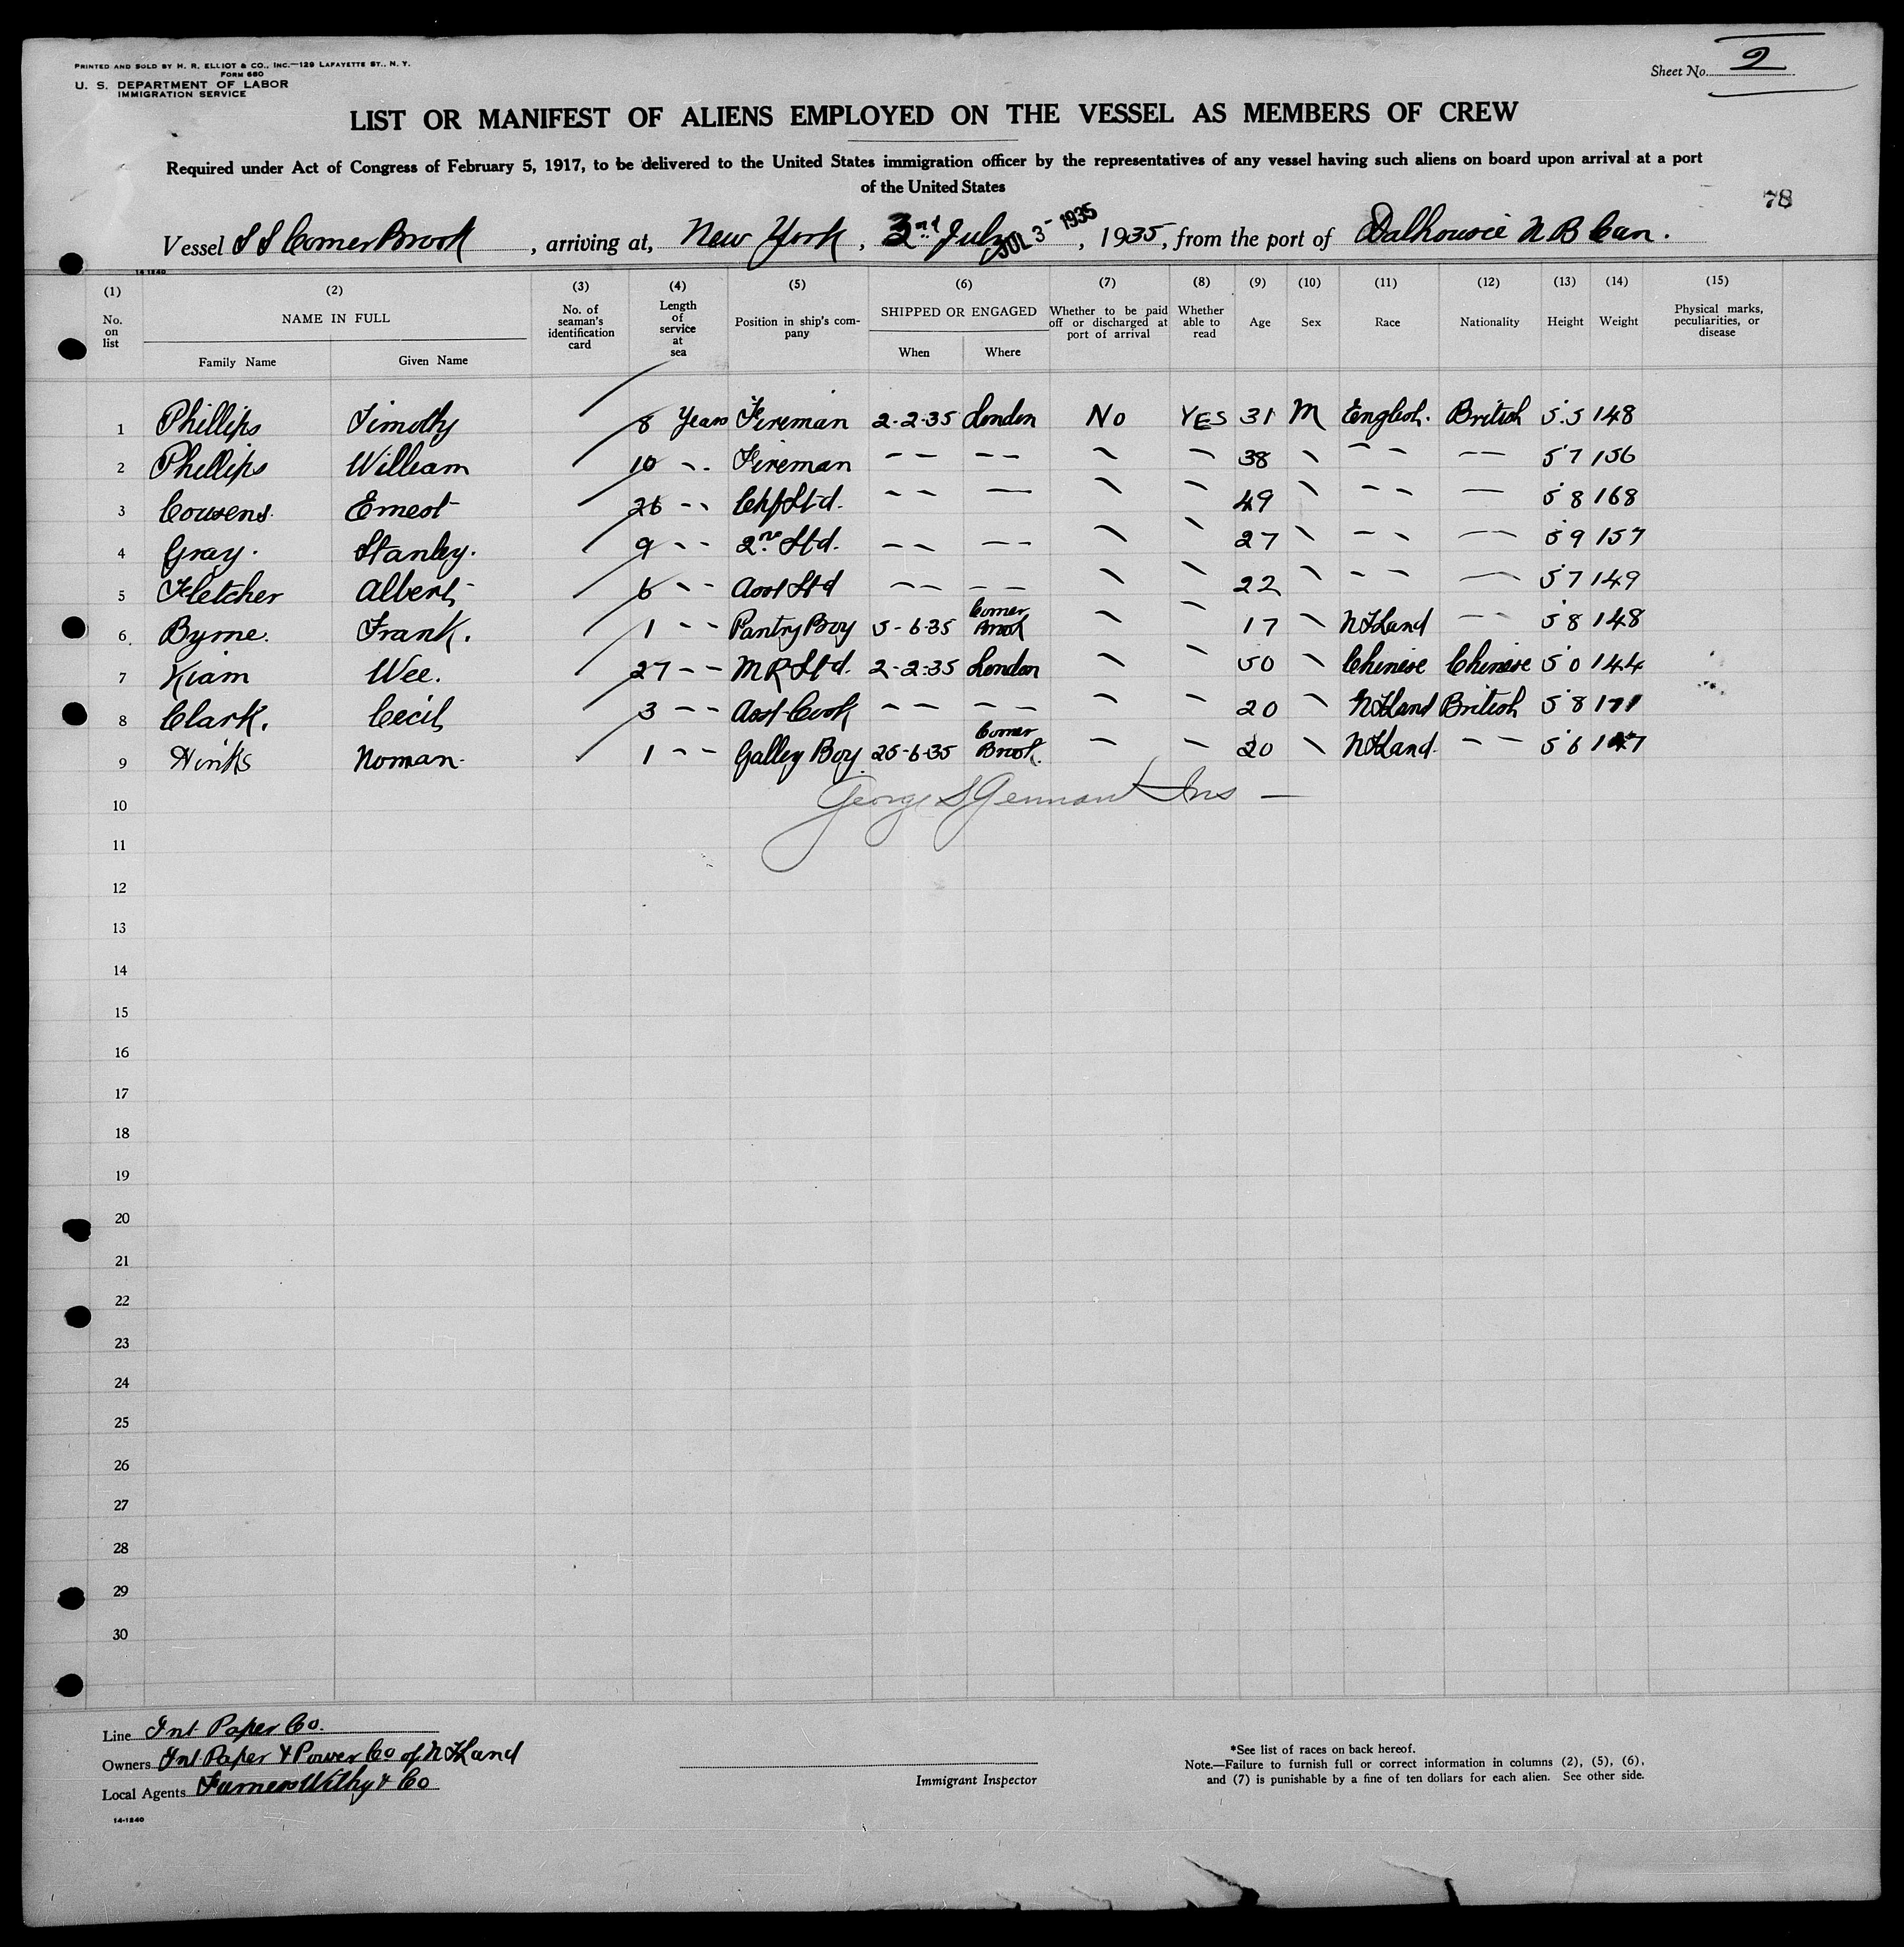 PRINTED AND SOLD BY H. R. ELLIOT & CO., INC.—129 LAFAYETTE ST., N. Y.
FORM 680
U. S. DEPARTMENT OF LABOR
IMMIGRATION SERVICE
Sheet No. 2
LIST OR MANIFEST OF ALIENS EMPLOYED ON THE VESSEL AS MEMBERS OF CREW
Required under Act of Congress of February 5, 1917, to be delivered to the United States immigration officer by the representatives of any vessel having such aliens on board upon arrival at a port
of the United States
78
Vessel S S Corner Brook, arriving at, New York, 3rd July JUL 3- 1935, 1935, from the port of Dalhousie N B Can.
14-1240
(1) (2) (3) (4) (5) (6) (7) (8) (9) (10) (11) (12) (13) (14) (15)
No. on list NAME IN FULL Family Name Given Name No. of seaman's identification card Length of service at sea Position in ship's company SHIPPED OR ENGAGED When Where Whether to be paid off or discharged at port of arrival Whether able to read Age Sex Race Nationality Height Weight Physical marks, peculiarities, or disease
1 Phillips Timothy 8 Years Fireman 2-2-35 London No YES 31 M English. British 5.5 148
2 Phillips William 10 - - Fireman - - - - - - 38 - - - - - 5 7 156
3 Cousens. Ernest 26 - - Chf Std. - - - - - 49 - - - - 5 8 168
4 Gray. Stanley. 9 - - 2nd Std. - - - - - - 27 - - - - - 5 9 157
5 Fletcher Albert 6 - - Asst Std - - - - - - 22 - - - - 5 7 149
6 Byrne. Frank. 1 - - Pantry Boy 5-6-35 Corner Brook - - 17 - NFLand - - 5 8 148
7 Kiam Wee. 27 - - M R Std. 2-2-35 London - - 50 - Chinese Chinese 5 0 144
8 Clark. Cecil 3 - - Asst Cook - - - - - - 20 - NFLand British 5 8 171
9 Hinks Noman. 1 - - Galley Boy 25-6-35 Corner Brook. - - 20 - NFLand. - - 5 6 147
George S Ins —
10
11
12
13
14
15
16
17
18
19
20
21
22
23
24
25
26
27
28
29
30
Line Int Paper Co.
Owners Int Paper & Power Co of NFLand
Local Agents Furness Withy & Co
Immigrant Inspector
*See list of races on back hereof.
Note.—Failure to furnish full or correct information in columns (2), (5), (6),
and (7) is punishable by a fine of ten dollars for each alien. See other side.
14-1240